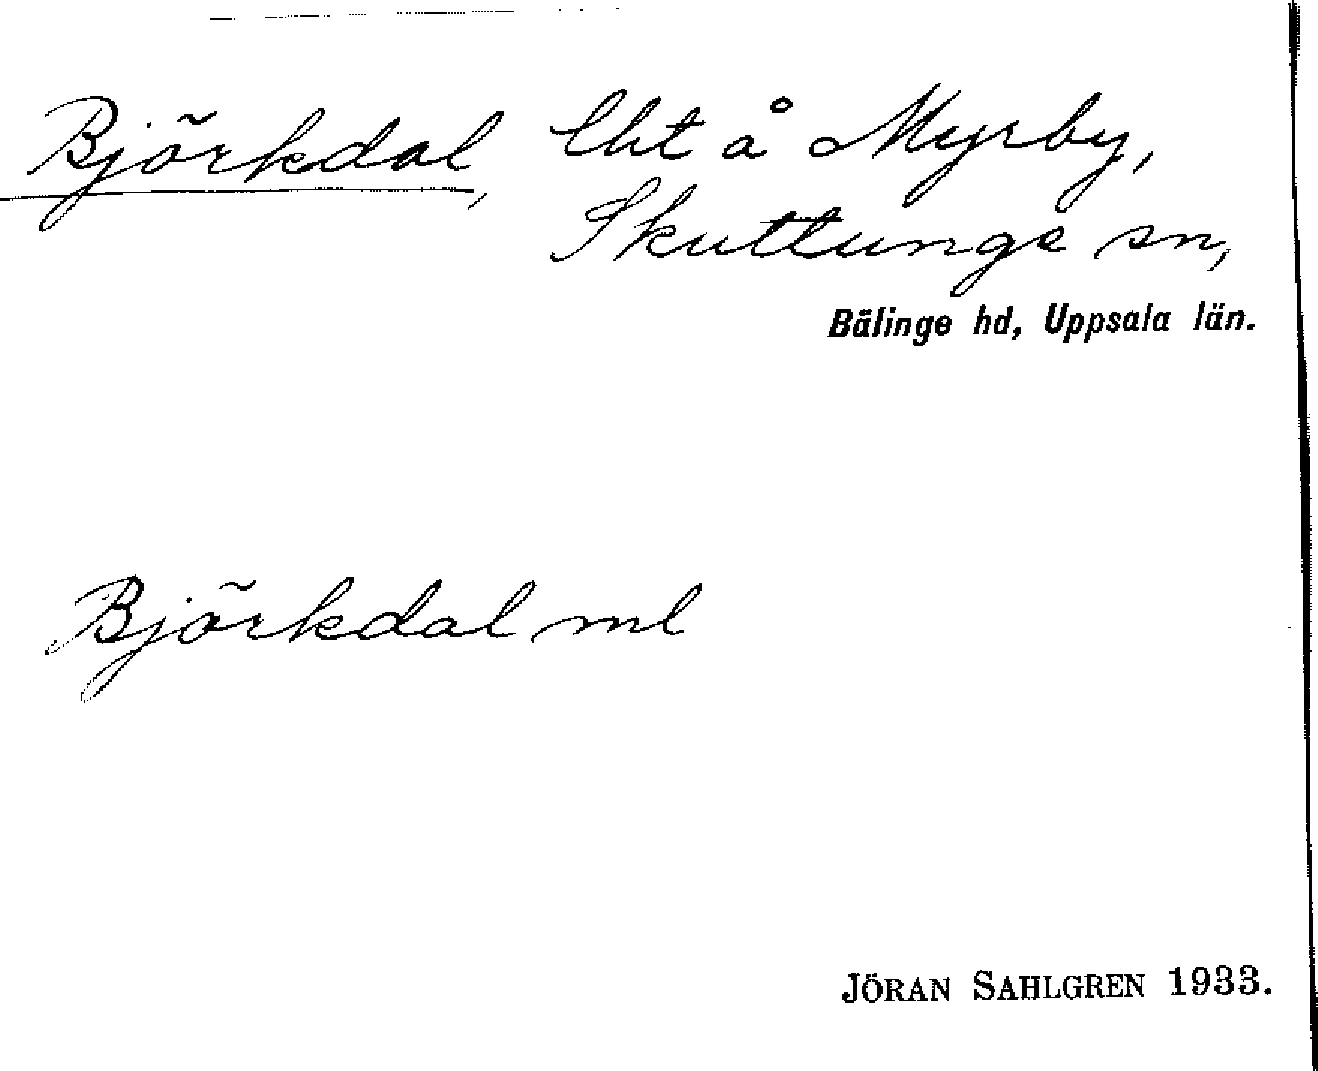 Björkdal, lht å Myrby,
Skuttunge sn,
Bälinge hd, Uppsala län.
Björkdal ml
JÖRAN SAHLGREN 1933.